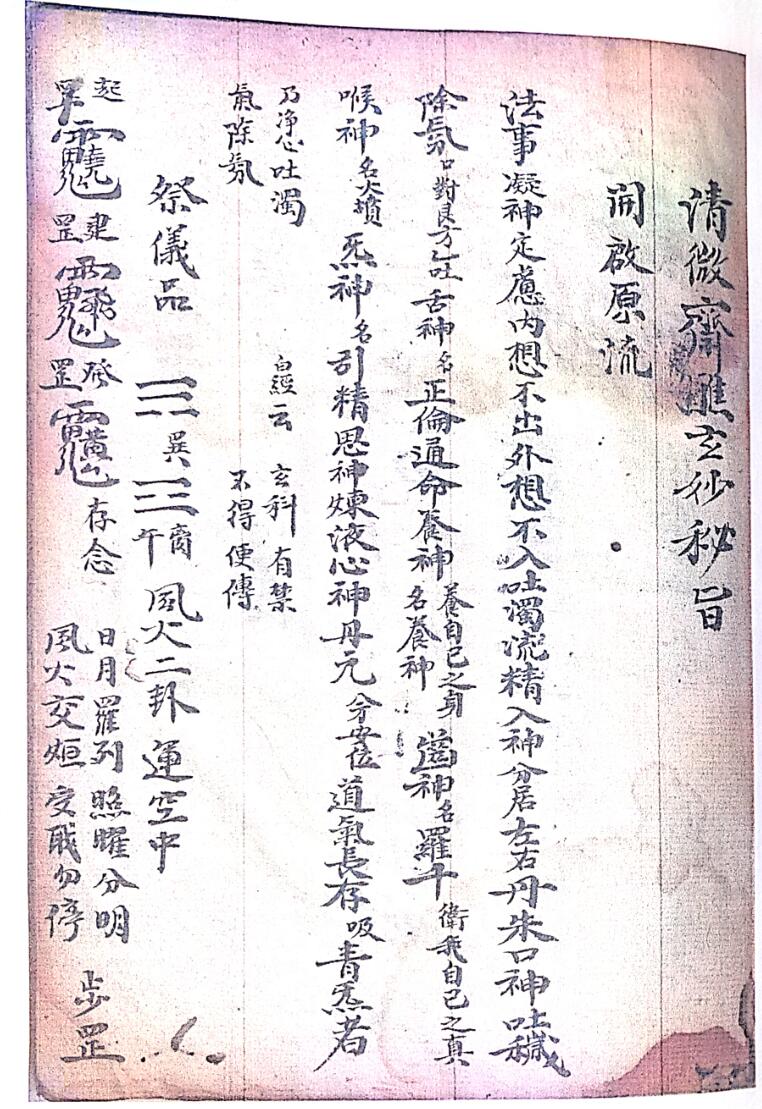 清微齋醮玄妙秘旨
開啟原流
法事凝神定慮内想不出外想不入吐濁流精入神分居左右丹朱口神吐穢
除氛口對艮方乙吐舌神名正倫通命養神養自己之身名養神齒神名羅千衛我自己之真
喉神名火墳炁神名引精思神煉液心神丹元分安位道氣長存吸青炁若
乃浄心吐濁白經云玄科有禁
氣除氛不得便傳
祭儀品☲巽☲午離風火二卦運空中
起罡建罡發罡存念日月羅列照曜分明
風火交烜受職勿停步罡